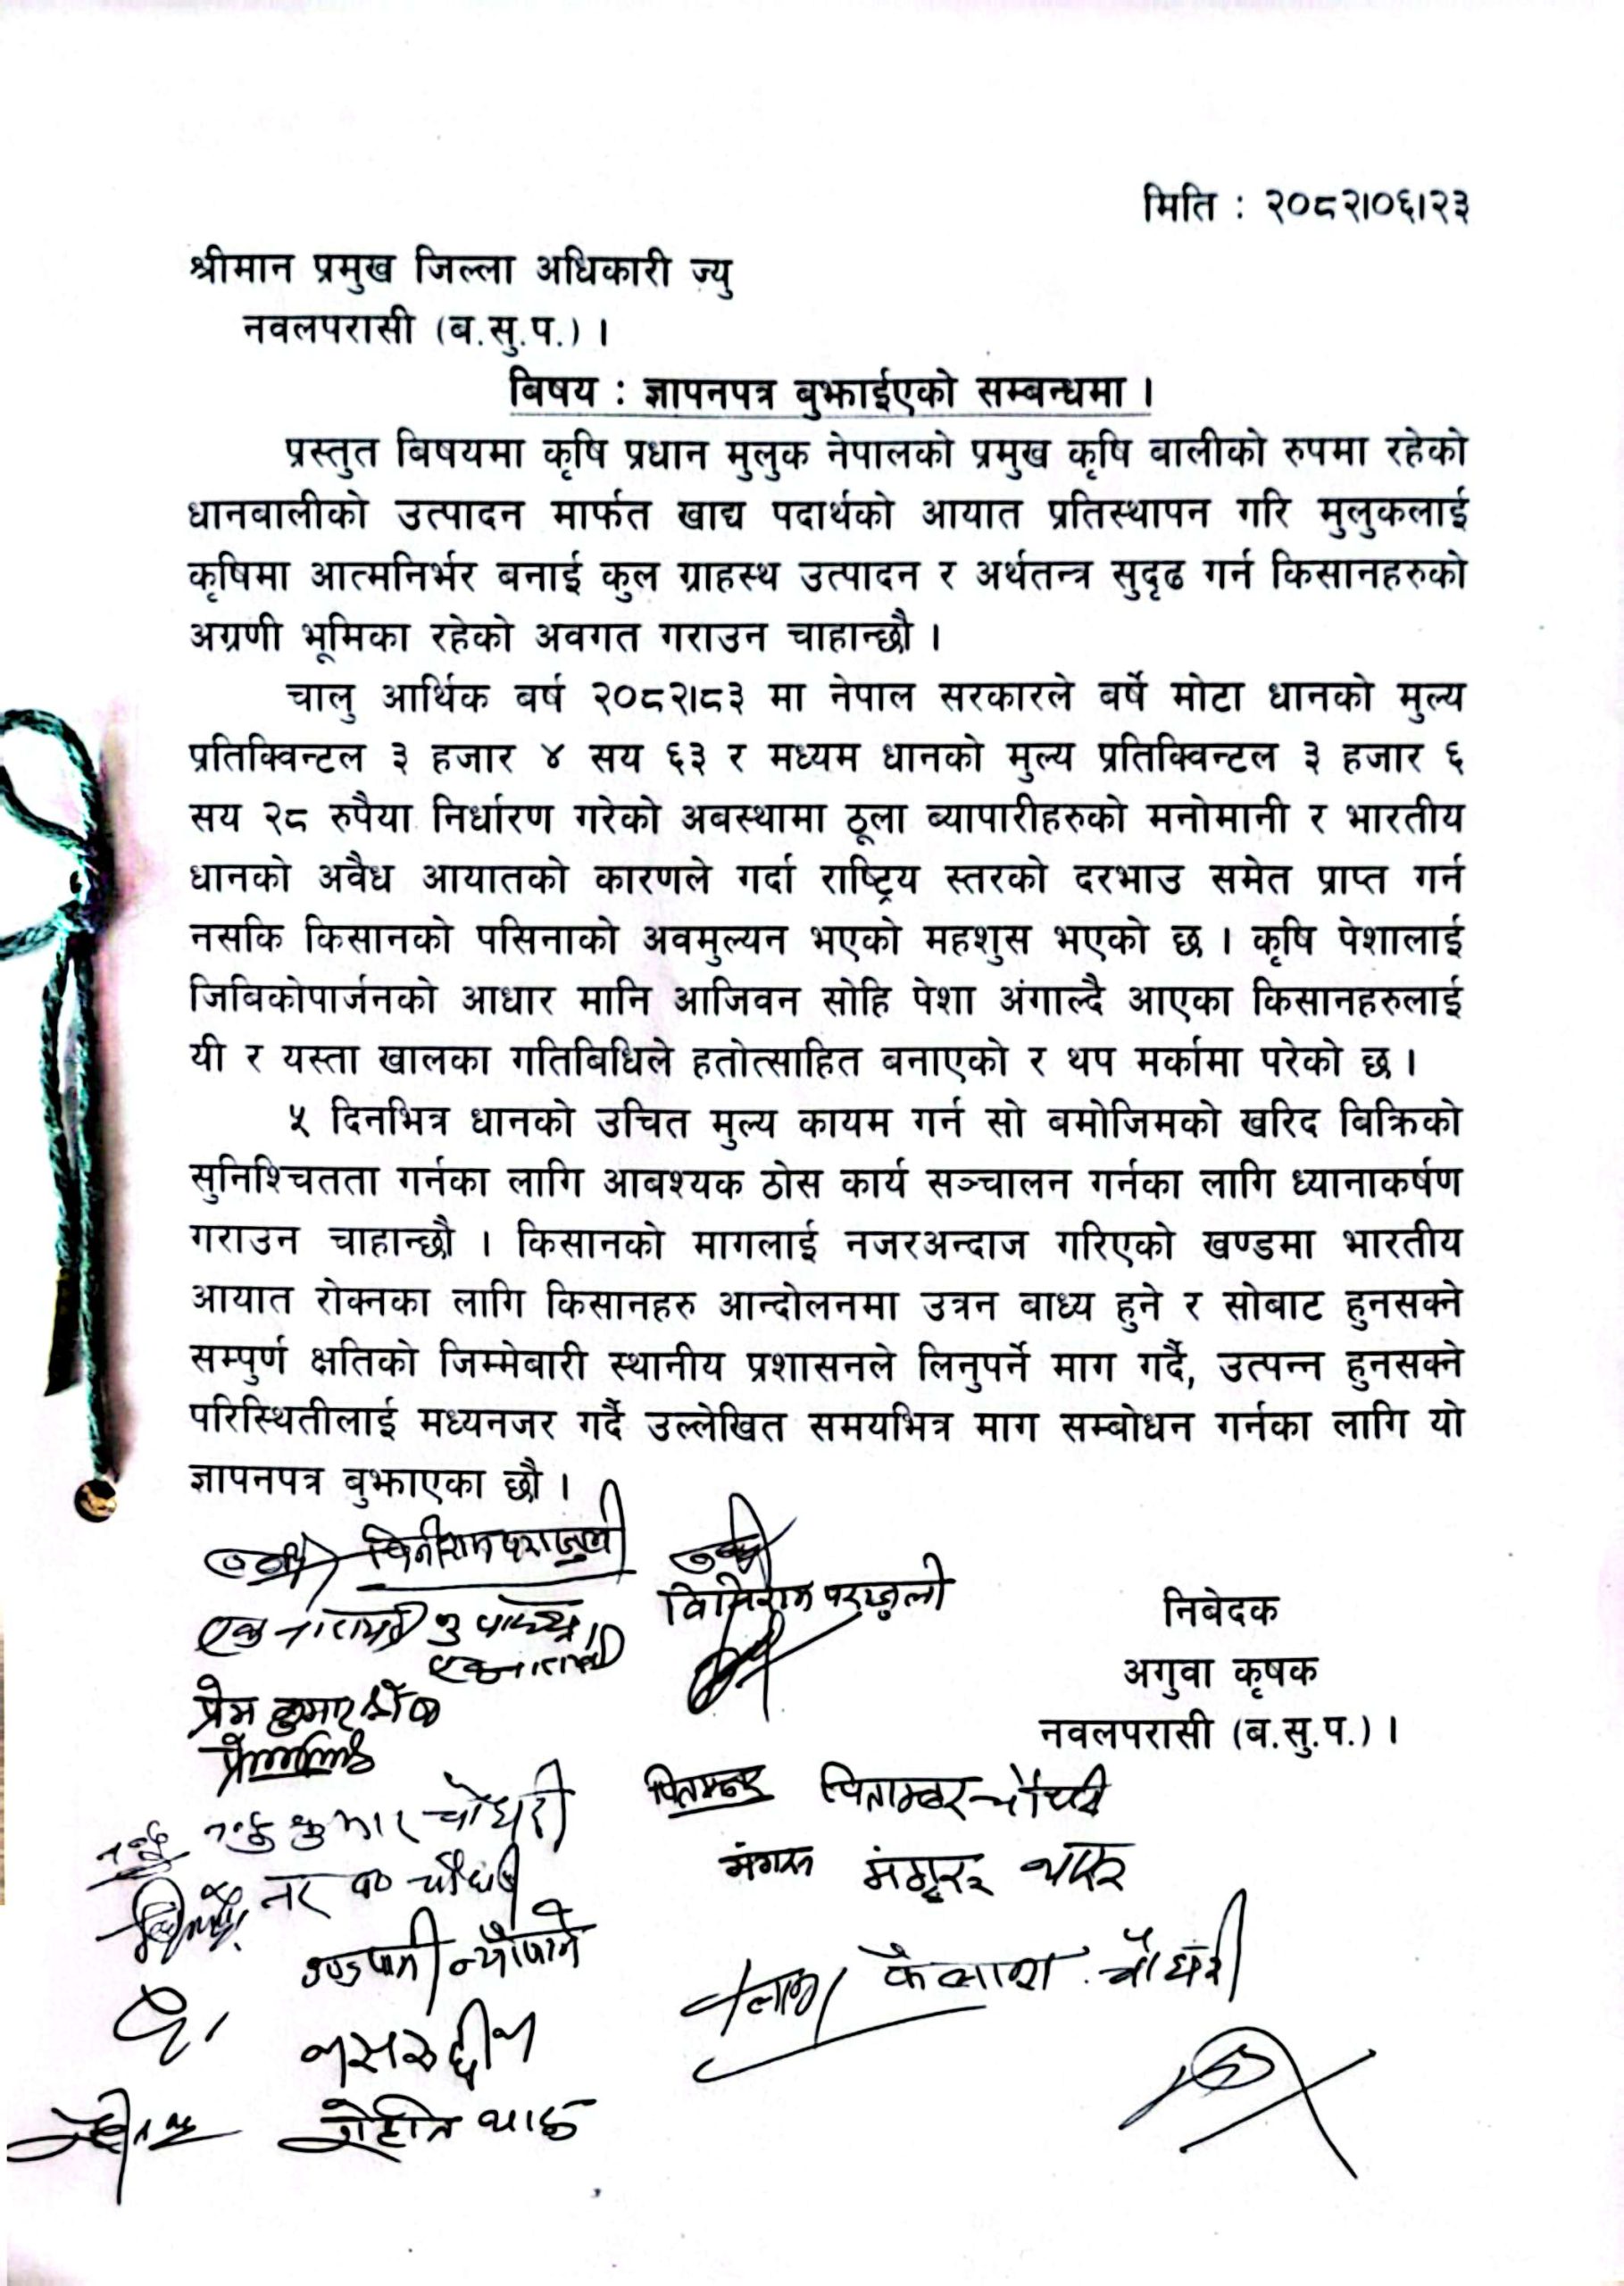 मिति : २०८२।०६।२३
श्रीमान प्रमुख जिल्ला अधिकारी ज्यु
नवलपरासी (ब.सु.प.) ।
बिषय : ज्ञापनपत्र बुझाईएको सम्बन्धमा ।
प्रस्तुत बिषयमा कृषि प्रधान मुलुक नेपालको प्रमुख कृषि बालीको रुपमा रहेको
धानबालीको उत्पादन मार्फत खाद्य पदार्थको आयात प्रतिस्थापन गरि मुलुकलाई
कृषिमा आत्मनिर्भर बनाई कुल ग्राहस्थ उत्पादन र अर्थतन्त्र सुदृढ गर्न किसानहरुको
अग्रणी भूमिका रहेको अवगत गराउन चाहान्छौ ।
चालु आर्थिक बर्ष २०८२।८३ मा नेपाल सरकारले बर्षे मोटा धानको मुल्य
प्रतिक्विन्टल ३ हजार ४ सय ६३ र मध्यम धानको मुल्य प्रतिक्विन्टल ३ हजार ६
सय २८ रुपैया निर्धारण गरेको अबस्थामा ठूला ब्यापारीहरुको मनोमानी र भारतीय
धानको अवैध आयातको कारणले गर्दा राष्ट्रिय स्तरको दरभाउ समेत प्राप्त गर्न
नसकि किसानको पसिनाको अवमुल्यन भएको महशुस भएको छ । कृषि पेशालाई
जिबिकोपार्जनको आधार मानि आजिवन सोहि पेशा अंगाल्दै आएका किसानहरुलाई
यी र यस्ता खालका गतिबिधिले हतोत्साहित बनाएको र थप मर्कामा परेको छ ।
५ दिनभित्र धानको उचित मुल्य कायम गर्न सो बमोजिमको खरिद बिक्रिको
सुनिश्चितता गर्नका लागि आबश्यक ठोस कार्य सञ्चालन गर्नका लागि ध्यानाकर्षण
गराउन चाहान्छौ । किसानको मागलाई नजरअन्दाज गरिएको खण्डमा भारतीय
आयात रोक्नका लागि किसानहरु आन्दोलनमा उत्रन बाध्य हुने र सोबाट हुनसक्ने
सम्पुर्ण क्षतिको जिम्मेबारी स्थानीय प्रशासनले लिनुपर्ने माग गर्दै, उत्पन्न हुनसक्ने
परिस्थितीलाई मध्यनजर गर्दै उल्लेखित समयभित्र माग सम्बोधन गर्नका लागि यो
ज्ञापनपत्र बुझाएका छौ ।
निबेदक
अगुवा कृषक
नवलपरासी (ब.सु.प.) ।
प्रेम कुमार
कुमार चौधरी
पिताम्बर पिताम्बर चौधरी
चौधरी
मंगरु
कैलाश चौधरी
नसरुद्दीन